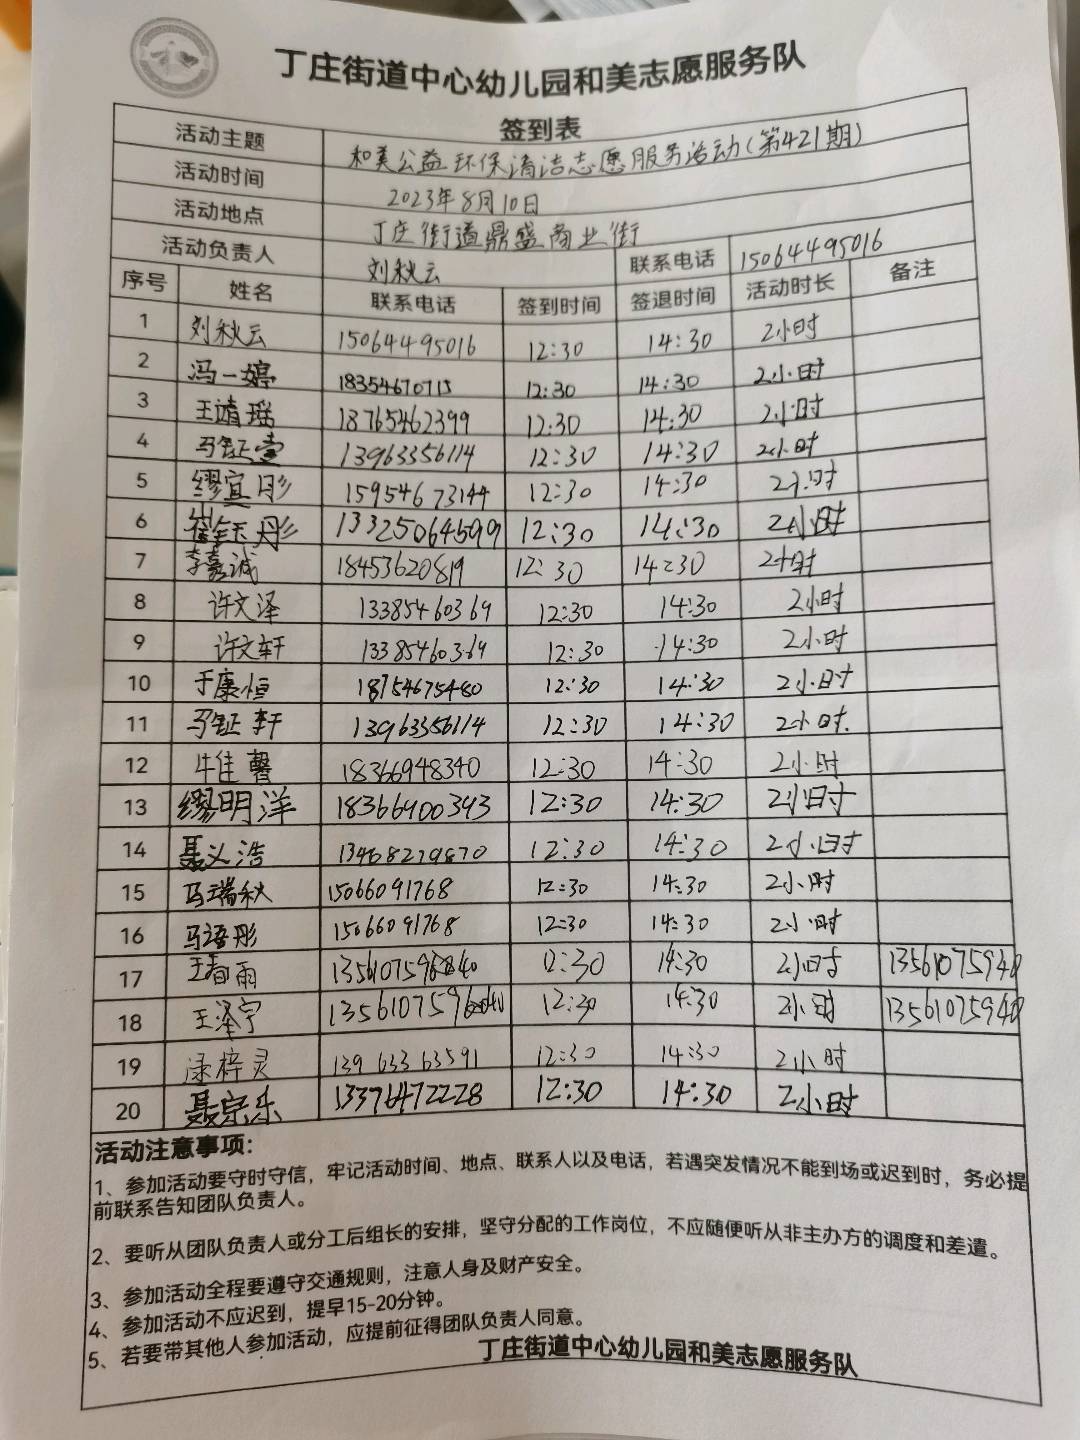 丁庄街道中心幼儿园和美志愿服务队
签到表
活动主题 和美公益环保清洁志愿服务活动(第421期)
活动时间 2023年8月10日
活动地点 丁庄街道鼎盛商业街
活动负责人 刘秋云 联系电话 15064495016
序号 姓名 联系电话 签到时间 签退时间 活动时长 备注
1 刘秋云 15064495016 12:30 14:30 2小时
2 冯一婷 18354670715 12:30 14:30 2小时
3 王靖瑶 18765462399 12:30 14:30 2小时
4 马钲壹 13963356114 12:30 14:30 2小时
5 缪宜彤 15954673144 12:30 14:30 2小时
6 崔钰彤 13325064599 12:30 14:30 2小时
7 李嘉诚 18453620819 12:30 14:30 2小时
8 许文泽 13385460369 12:30 14:30 2小时
9 许文轩 13385460369 12:30 14:30 2小时
10 于康恒 18754675480 12:30 14:30 2小时
11 马钲轩 13963356114 12:30 14:30 2小时
12 牛佳馨 18366948340 12:30 14:30 2小时
13 缪明洋 18366900393 12:30 14:30 2小时
14 聂义浩 13468279870 12:30 14:30 2小时
15 马瑞秋 15066091768 12:30 14:30 2小时
16 马语彤 15066091768 12:30 14:30 2小时
17 王春雨 12:30 14:30 2小时 13561075940
18 王泽宇 12:30 14:30 2小时 13561075940
19 梓灵 13963363591 12:30 14:30 2小时
20 聂宗乐 13376472228 12:30 14:30 2小时
活动注意事项:
1、参加活动要守时守信，牢记活动时间、地点、联系人以及电话，若遇突发情况不能到场或迟到时，务必提
前联系告知团队负责人。
2、要听从团队负责人或分工后组长的安排，坚守分配的工作岗位，不应随便听从非主办方的调度和差遣。
3、参加活动全程要遵守交通规则，注意人身及财产安全。
4、参加活动不应迟到，提早15-20分钟。
5、若要带其他人参加活动，应提前征得团队负责人同意。
丁庄街道中心幼儿园和美志愿服务队